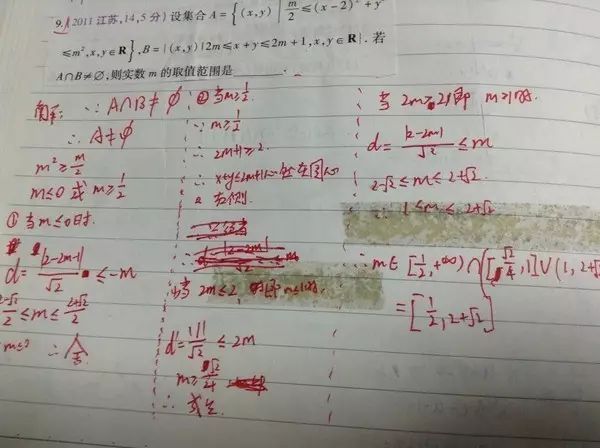 9.(2011江苏,14,5分)设集合A={(x,y)|m/2≤(x-2)²+y²
≤m²,x,y∈R},B={(x,y)|2m≤x+y≤2m+1,x,y∈R}.若
A∩B≠∅,则实数m的取值范围是
解: ∵A∩B≠∅
∴A≠∅
m²≥m/2
m≤0 或 m≥1/2
① 当m≤0时
d=|2-2m-1|/√2 ≤-m
(2-√2)/2≤m≤(2+√2)/2
m≤0 ∴舍
② 当m≥1/2
∵m≥1/2
∴2m+1≥2
∴x+y≤2m+1 在圆
右侧
当2m≤2 即m≤1时
d=|1|/√2 ≤2m
m≥√2/4
∴成立
当 2m≥2 即 m≥1时
d=|2-2m|/√2≤m
2-√2≤m≤2+√2
∴1≤m≤2+√2
∴m∈[1/2,+∞)∩([√2/4,1]∪(1,2+√2
=[1/2,2+√2]